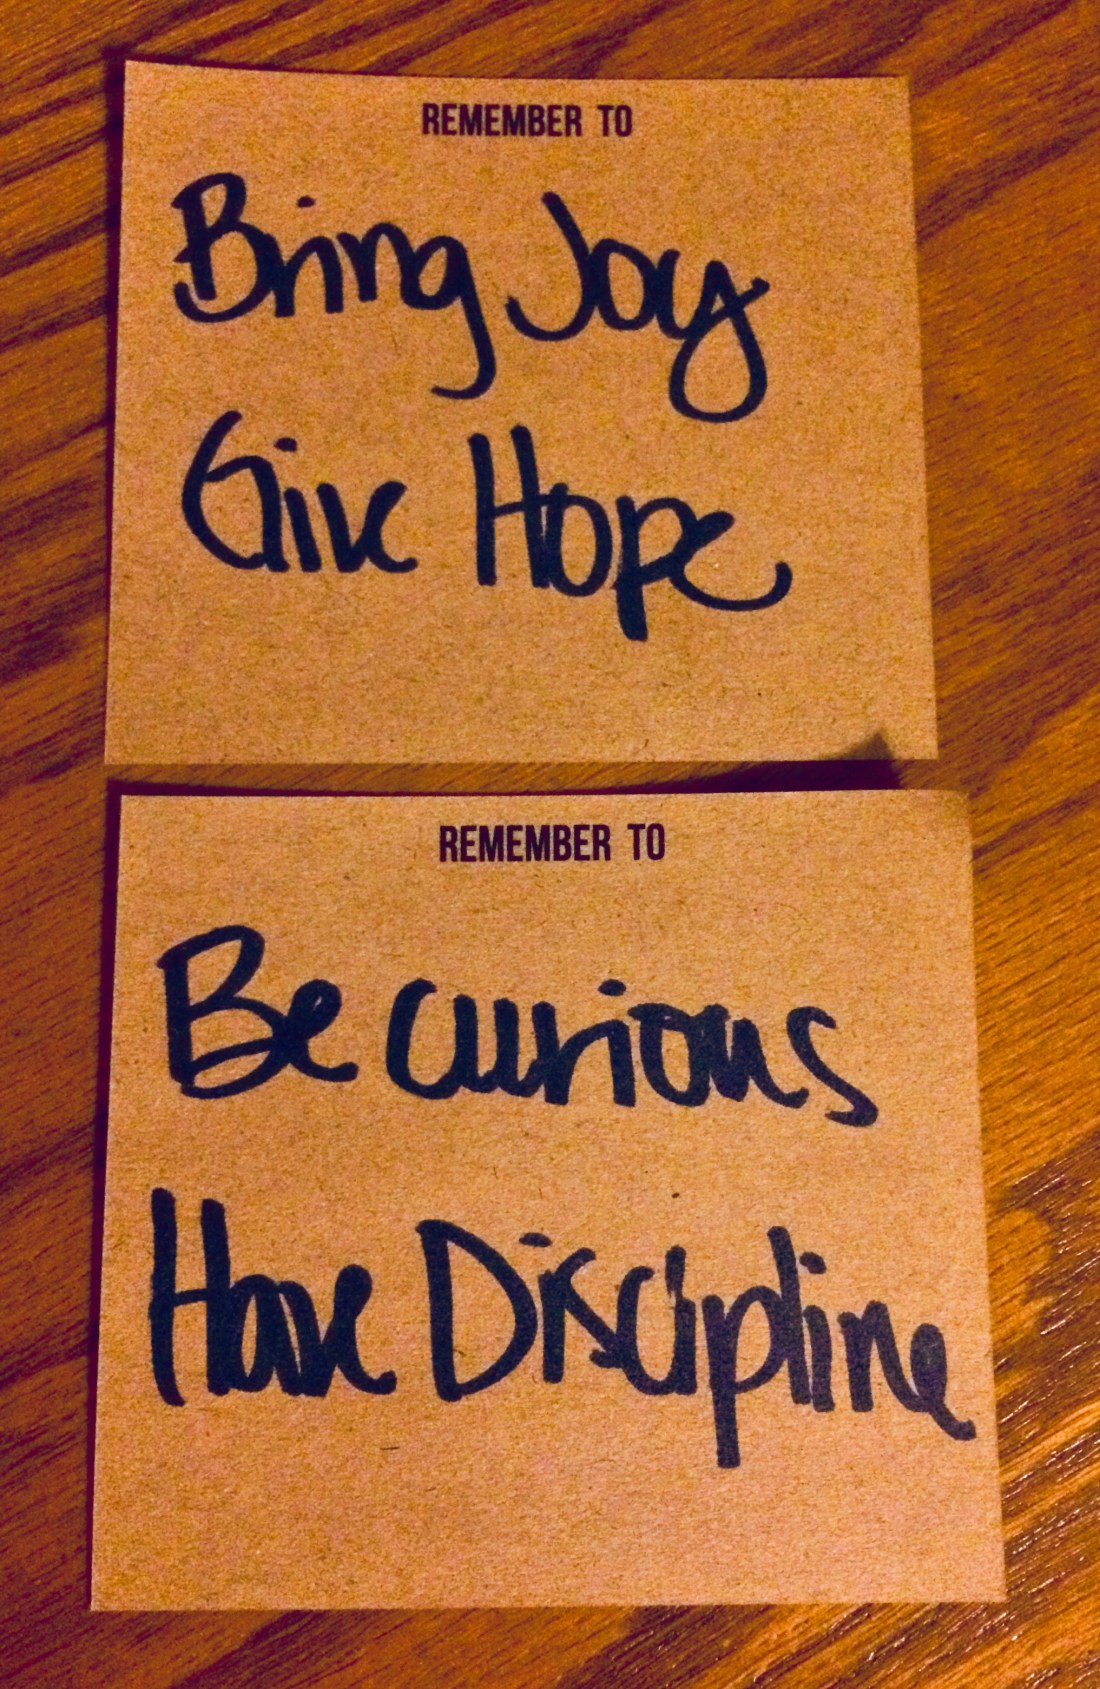 REMEMBER TO
Bring Joy
Give Hope
REMEMBER TO
Be curious
Have Discipline